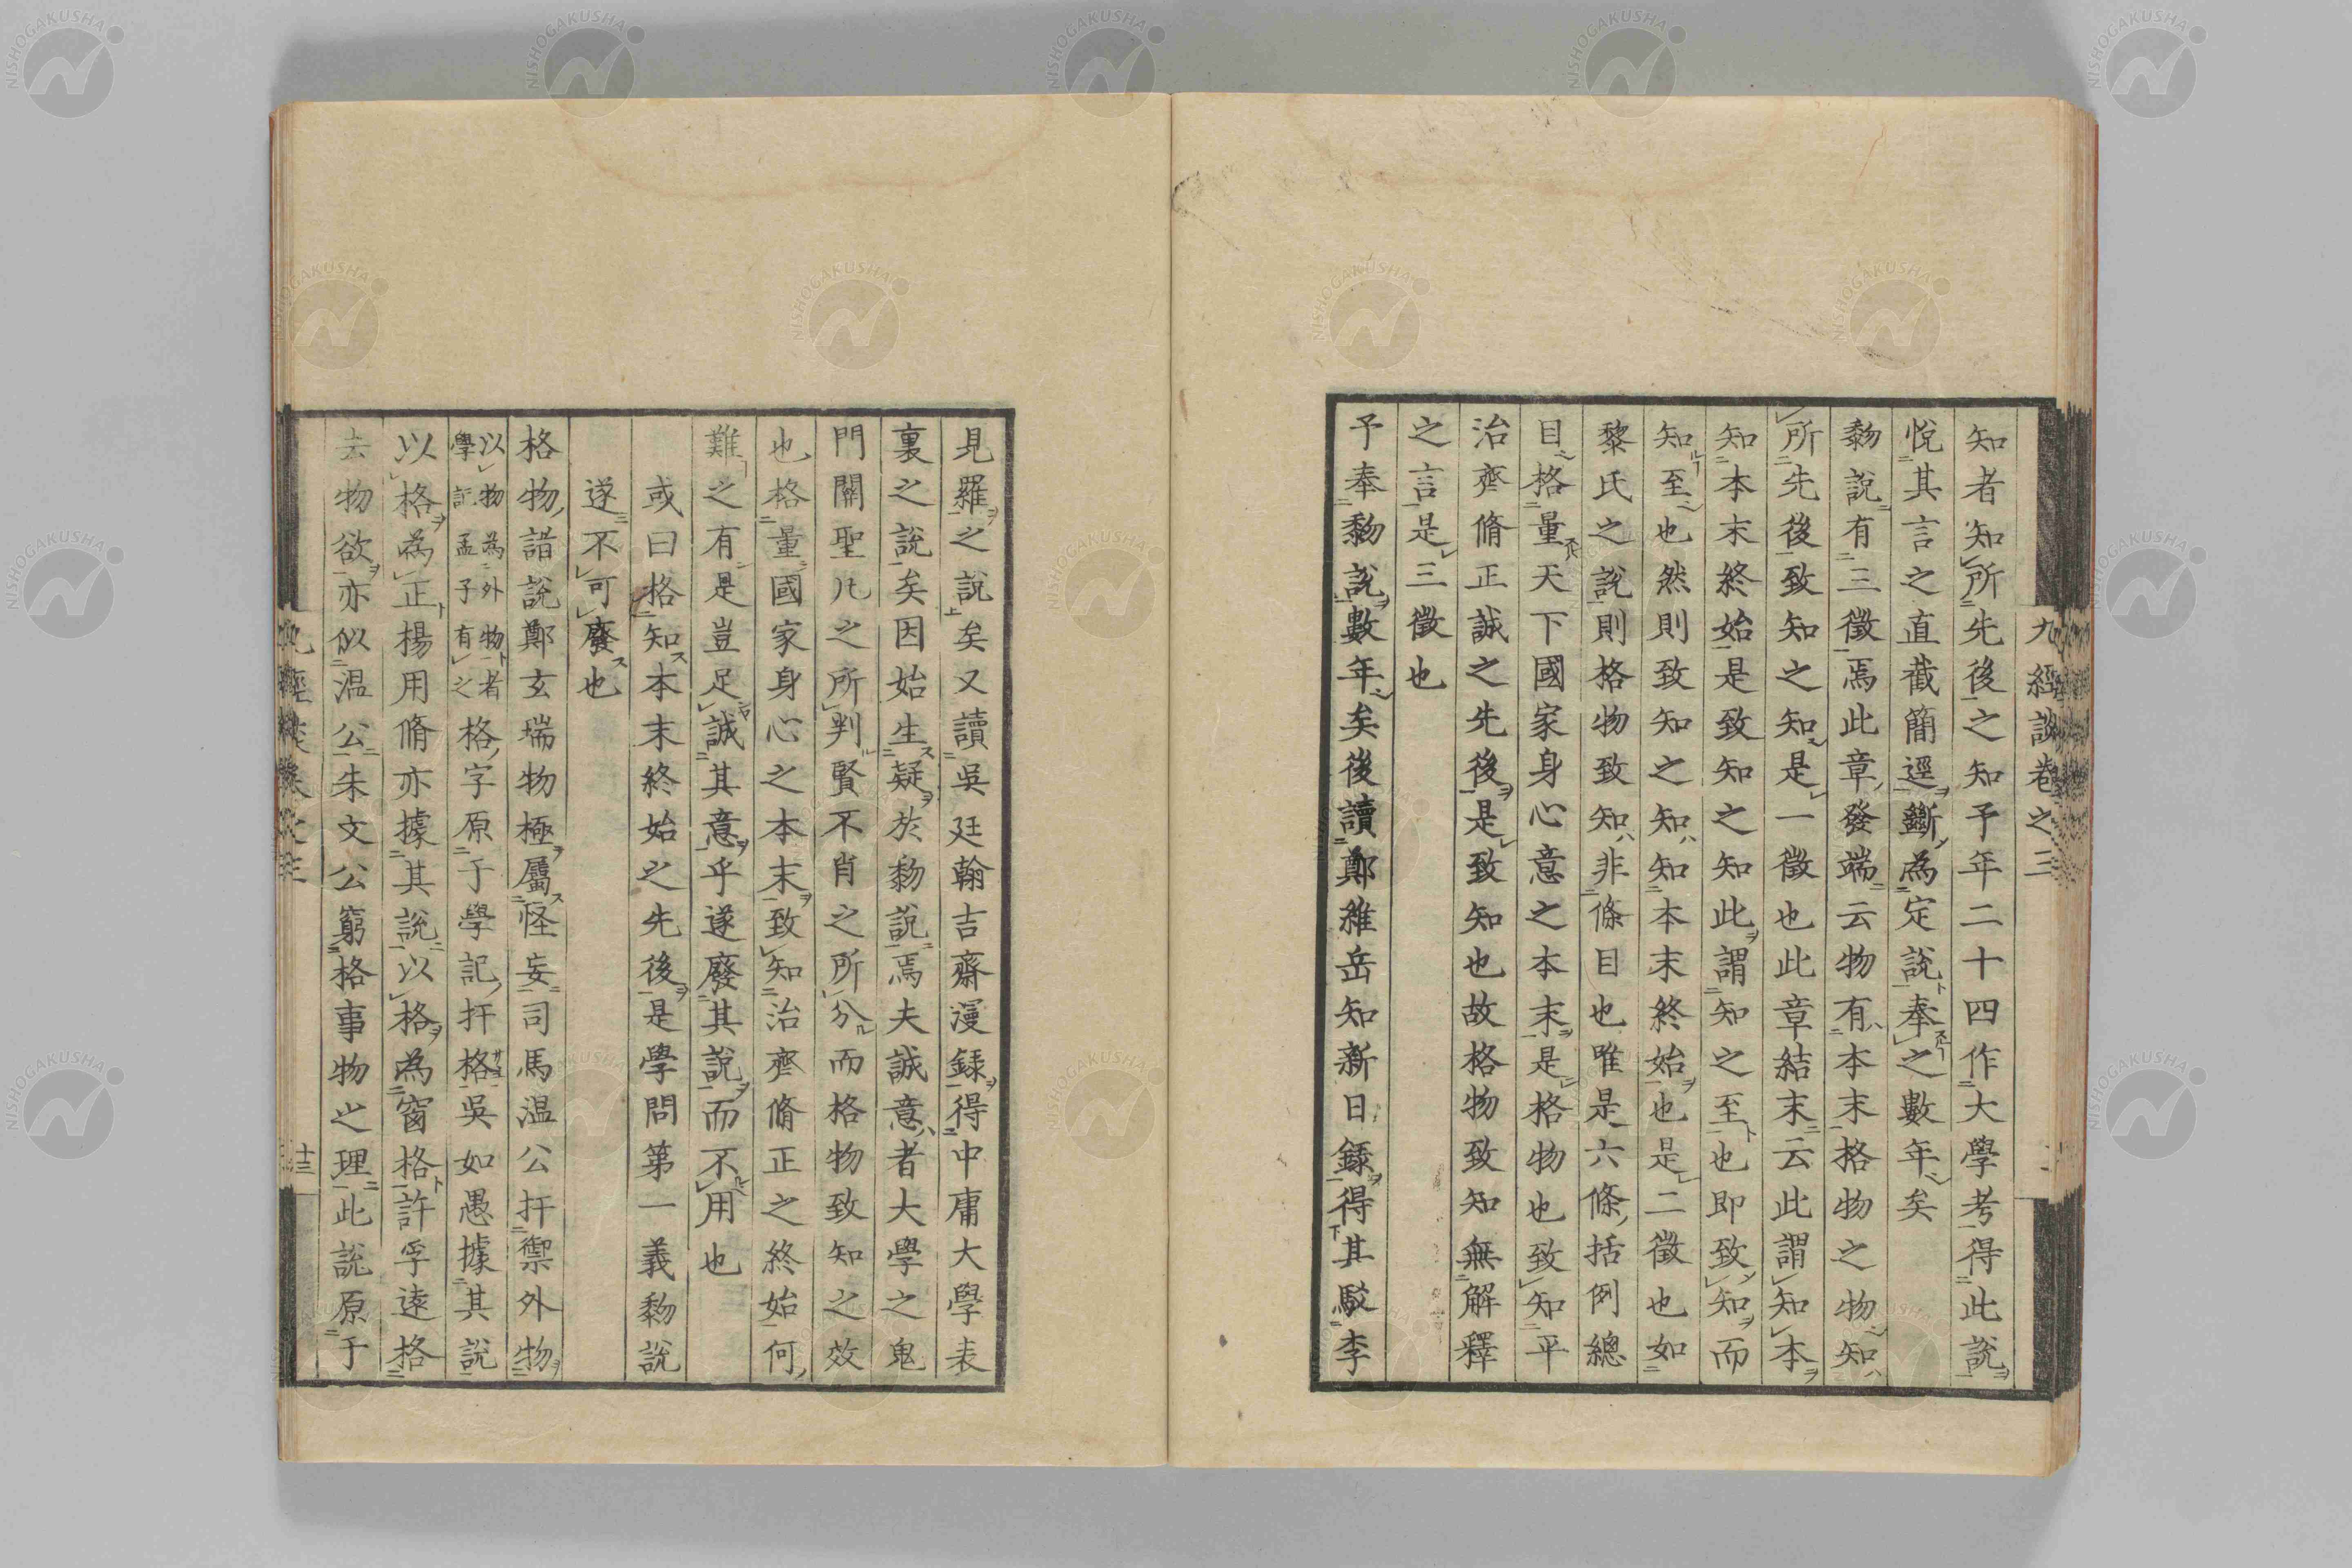 九經談卷之三
知者知所先後之知予年二十四作大學考得此說
悅其言之直截簡逕斷為定說奉之數年矣
黐說有三徵焉此章發端云物有本末格物之物知
所先後致知之知是一徵也此章結末云此謂知本
知本末終始是致知之知此謂知之至也即致知而
知至也然則致知之知知本末終始也是二徵也如
黎氏之說則格物致知非條目也唯是六條括例總
目格量天下國家身心意之本末是格物也致知平
治齊脩正誠之先後是致知也故格物致知無解釋
之言是三徵也
予奉黐說數年矣後讀鄭雒岳知新日錄得其駁李
見羅之說矣又讀吳廷翰吉齋漫錄得中庸大學表
裏之說矣因始生疑於黐說焉夫誠意者大學之鬼
門關聖凡之所判賢不肖之所分而格物致知之效
也格量國家身心之本末致知治齊脩正之終始何
難之有是豈足誠其意乎遂廢其說而不用也
或曰格知本末終始之先後是學問第一義黐說
遂不可廢也
格物諸說鄭玄瑞物極屬怪妄司馬温公扞禦外物
以物為外物者
學記孟子有之
格字原于學記扞格吳如愚據其說
以格為正楊用脩亦據其說以格為窗格許孚遠格
去物欲亦似温公朱文公窮格事物之理此說原于
十三